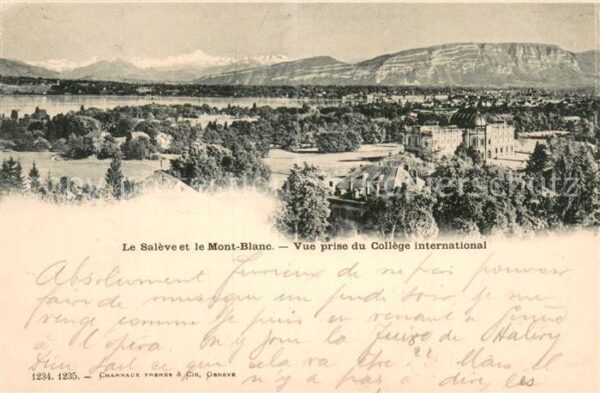 Le Salève et le Mont-Blanc. — Vue prise du Collège international
Absolument furieux de ne pas pouvoir
faire de musique un jeudi soir, je me
venge comme je puis en venant à
à l'opéra. On y joue la Juive de Halévy
Dieu sait ce que cela va être!! Mais il
n'y a pas à dire, les
1234. 1235. — Charnaux Frères & Cie, Genève